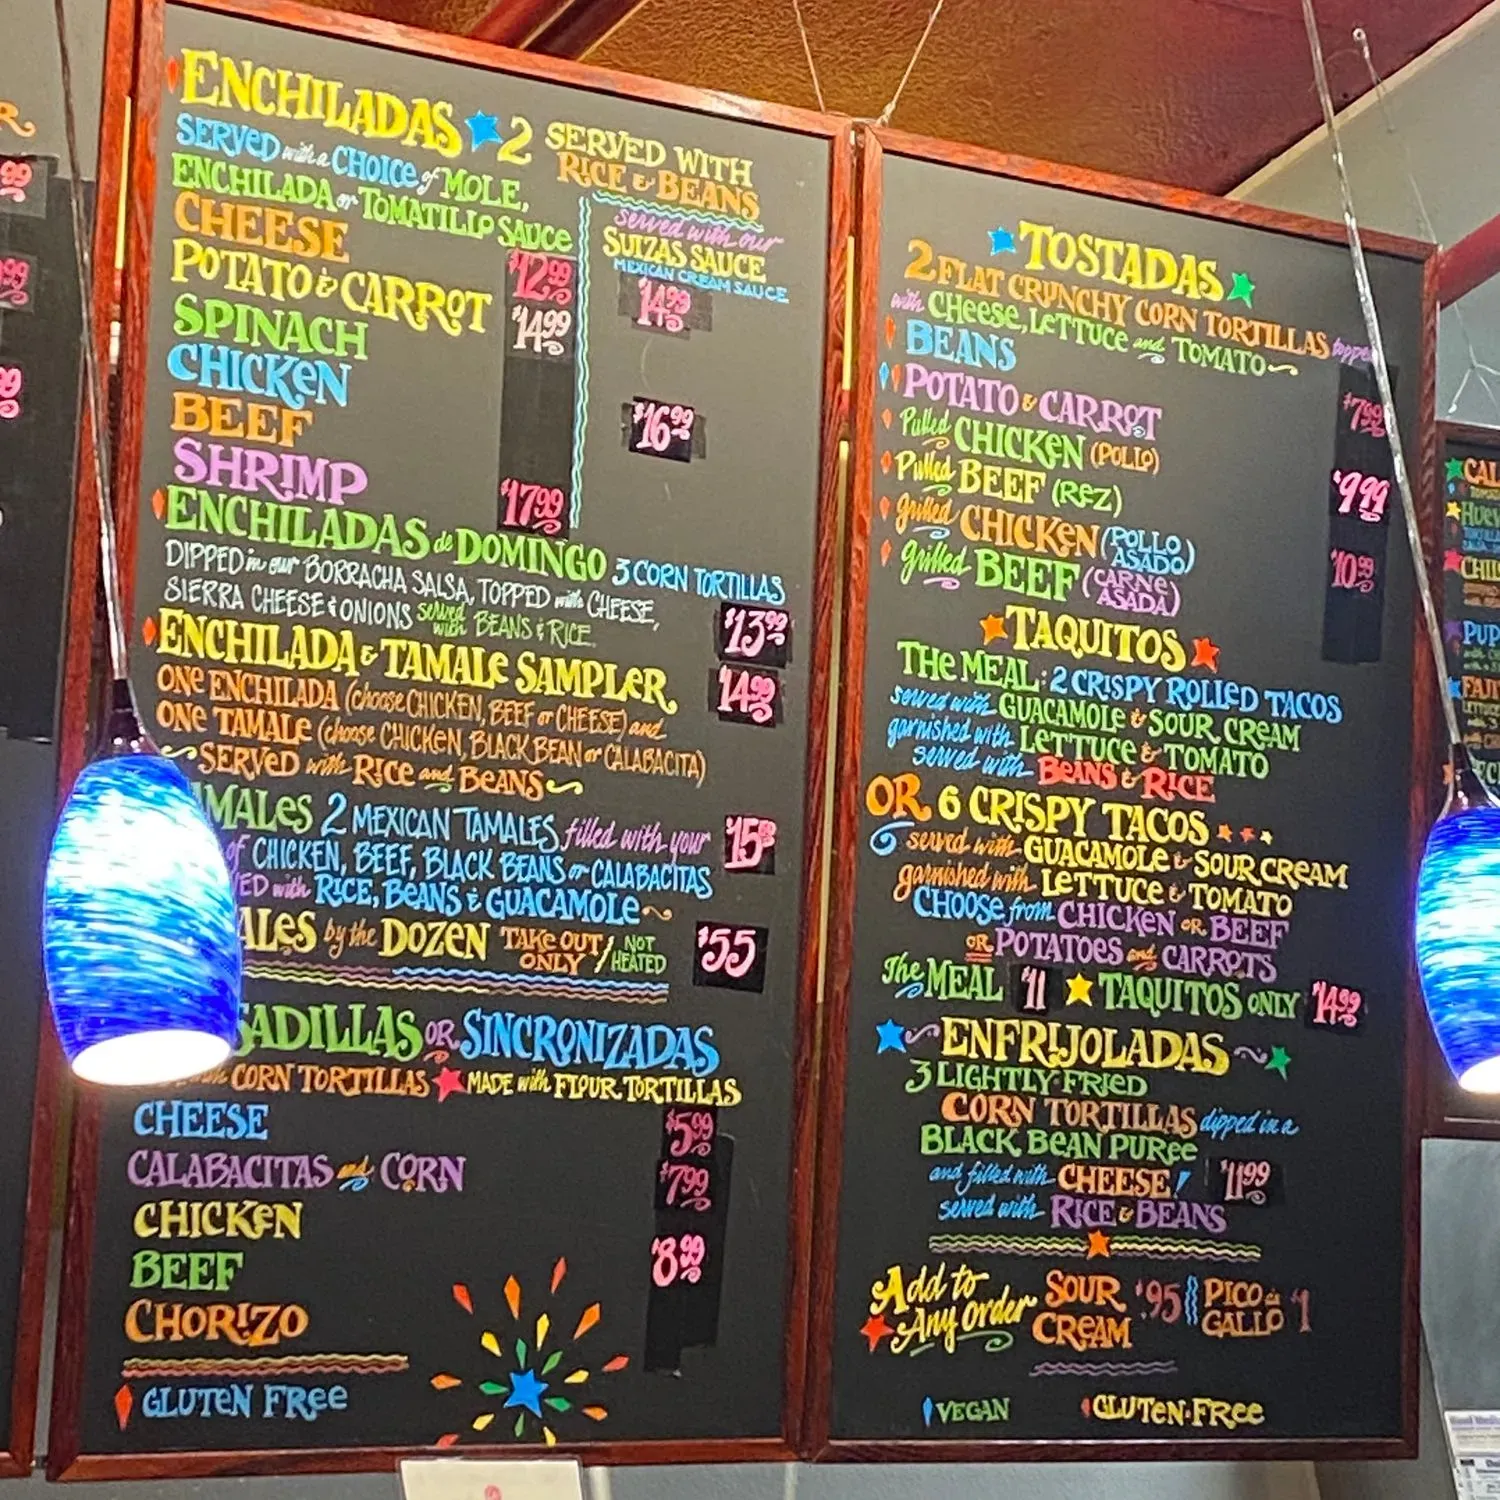 ENCHILADAS 2 SERVED WITH RICE & BEANS
SERVED with a CHOICE of MOLE,
ENCHILADA or TOMATILLO SAUCE
served with our
SUIZAS SAUCE
MEXICAN CREAM SAUCE
CHEESE $12.99 $14.99
POTATO & CARROT $14.99
SPINACH
CHICKEN
BEEF $16.99
SHRIMP $17.99
ENCHILADAS de DOMINGO 3 CORN TORTILLAS
DIPPED in our BORRACHA SALSA, TOPPED with CHEESE,
SIERRA CHEESE & ONIONS served with BEANS & RICE. $13.99
ENCHILADA & TAMALE SAMPLER $14.99
ONE ENCHILADA (choose CHICKEN, BEEF or CHEESE) and
ONE TAMALE (choose CHICKEN, BLACK BEAN or CALABACITA)
SERVED with RICE and BEANS
AMALES 2 MEXICAN TAMALES filled with your
of CHICKEN, BEEF, BLACK BEANS or CALABACITAS
ED with RICE, BEANS & GUACAMOLE
ALES by the DOZEN TAKE OUT ONLY / NOT HEATED $55
SADILLAS OR SINCRONIZADAS
CORN TORTILLAS MADE with FLOUR TORTILLAS
CHEESE $5.99
CALABACITAS and CORN $7.99
CHICKEN
BEEF $8.99
CHORIZO
GLUTEN FREE
TOSTADAS
2 FLAT CRUNCHY CORN TORTILLAS topped
with CHEESE, LETTUCE and TOMATO
BEANS
POTATO & CARROT $7.99
Pulled CHICKEN (POLLO)
Pulled BEEF (REZ) $9.99
grilled CHICKEN (POLLO ASADO)
grilled BEEF (CARNE ASADA) $10.99
TAQUITOS
THE MEAL: 2 CRISPY ROLLED TACOS
served with GUACAMOLE & SOUR CREAM
garnished with LETTUCE & TOMATO
served with BEANS & RICE
OR 6 CRISPY TACOS
served with GUACAMOLE & SOUR CREAM
garnished with LETTUCE & TOMATO
CHOOSE from CHICKEN OR BEEF
OR POTATOES and CARROTS
The MEAL $11 TAQUITOS ONLY $14.99
ENFRIJOLADAS
3 LIGHTLY FRIED
CORN TORTILLAS dipped in a
BLACK BEAN PUREE
and filled with CHEESE! $11.99
served with RICE & BEANS
Add to Any Order SOUR CREAM $.95 PICO de GALLO $1
VEGAN GLUTEN-FREE